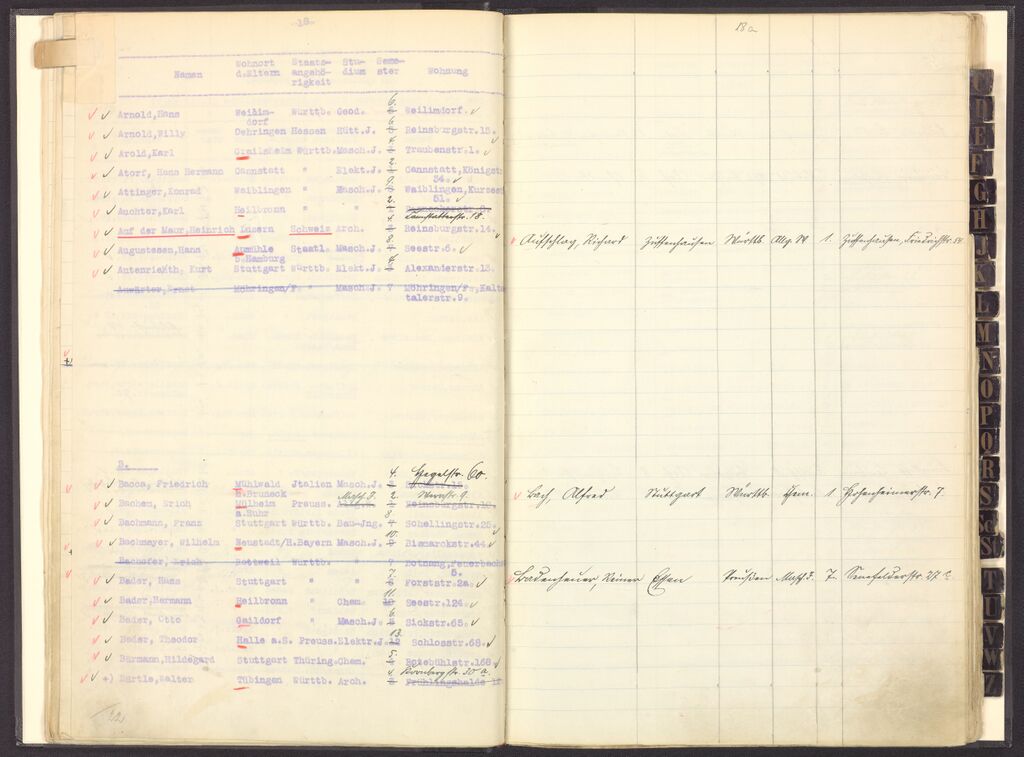 -18-
Namen Wohnort d.Eltern Staats-angehö-rigkeit Stu-dium Seme-ster Wohnung
6.
Arnold, Hans Weilim-dorf Württb. Geod. Weilimdorf.
6
Arnold, Willy Oehringen Hessen Hütt.J. Reinsburgstr.15.
4
Arold, Karl Crailsheim Württb. Masch.J. Traubenstr.1.
2.
Atorf, Hans Hermann Cannstatt " Elekt.J. Cannstatt, Königstr 34.
9.
Attinger, Konrad Waiblingen " Masch.J. Waiblingen, Kurzest 51.
2.
Auchter, Karl Heilbronn " "
Cannstatterstr. 18.
Auf der Maur, Heinrich Luzern Schweiz Arch. Reinsburgstr.14.
8.
Augustesen, Hans Aumühle b.Hamburg Staatl. Masch.J. Seestr.6.
Autenrieth, Kurt Stuttgart Württb. Elekt.J. Alexanderstr.13.
Auwärter, Ernst Möhringen/F. " Masch.J. 7 Möhringen/F., Kalta talerstr.9.
B.
4. Hegelstr. 60.
Bacca, Friedrich Mühlwald b.Bruneck Jtalien Masch.J.
Masch.J. 2. Wernstr. 9.
Bachem, Erich Mülheim a.Ruhr Preuss. Reinsburgstr.10.
8
Bachmann, Franz Stuttgart Württb. Bau-Jng. Schellingstr.25.
10.
Bachmayer, Wilhelm Neustadt/H. Bayern Masch.J. Bismarckstr.44.
Bachofer, Erich Rottweil Württb. " Botnang, Feuerbachs 5.
7.
Bader, Hans Stuttgart " " Forststr.2a.
11.
Bader, Hermann Heilbronn " Chem. 10 Seestr.124.
6.
Bader, Otto Gaildorf " Masch.J. Sickstr.65.
13.
Bader, Theodor Halle a.S. Preuss. Elektr.J. 12 Schlosstr.68.
5.
Bärmann, Hildegard Stuttgart Thüring. Chem. Rotebühlstr.168
4. Kornbergstr. 30 a.
+) Bärtle, Walter Tübingen Württb. Arch. Frühlingshalde 1
18a
Aufschlag, Richard Zuffenhausen Württb. 1. Zuffenhausen, Friedrichstr. 54.
Bach, Alfred Stuttgart Württb. Chem. 1 Hohenheimerstr. 7.
Badenheuer, Reiner Essen Preußen Masch.J. 7. Senefelderstr. 27
C
D
E
F
G
H
J
K
L
M
N
O
P
Q
R
S
Sch
St
T
U
V
W
Z